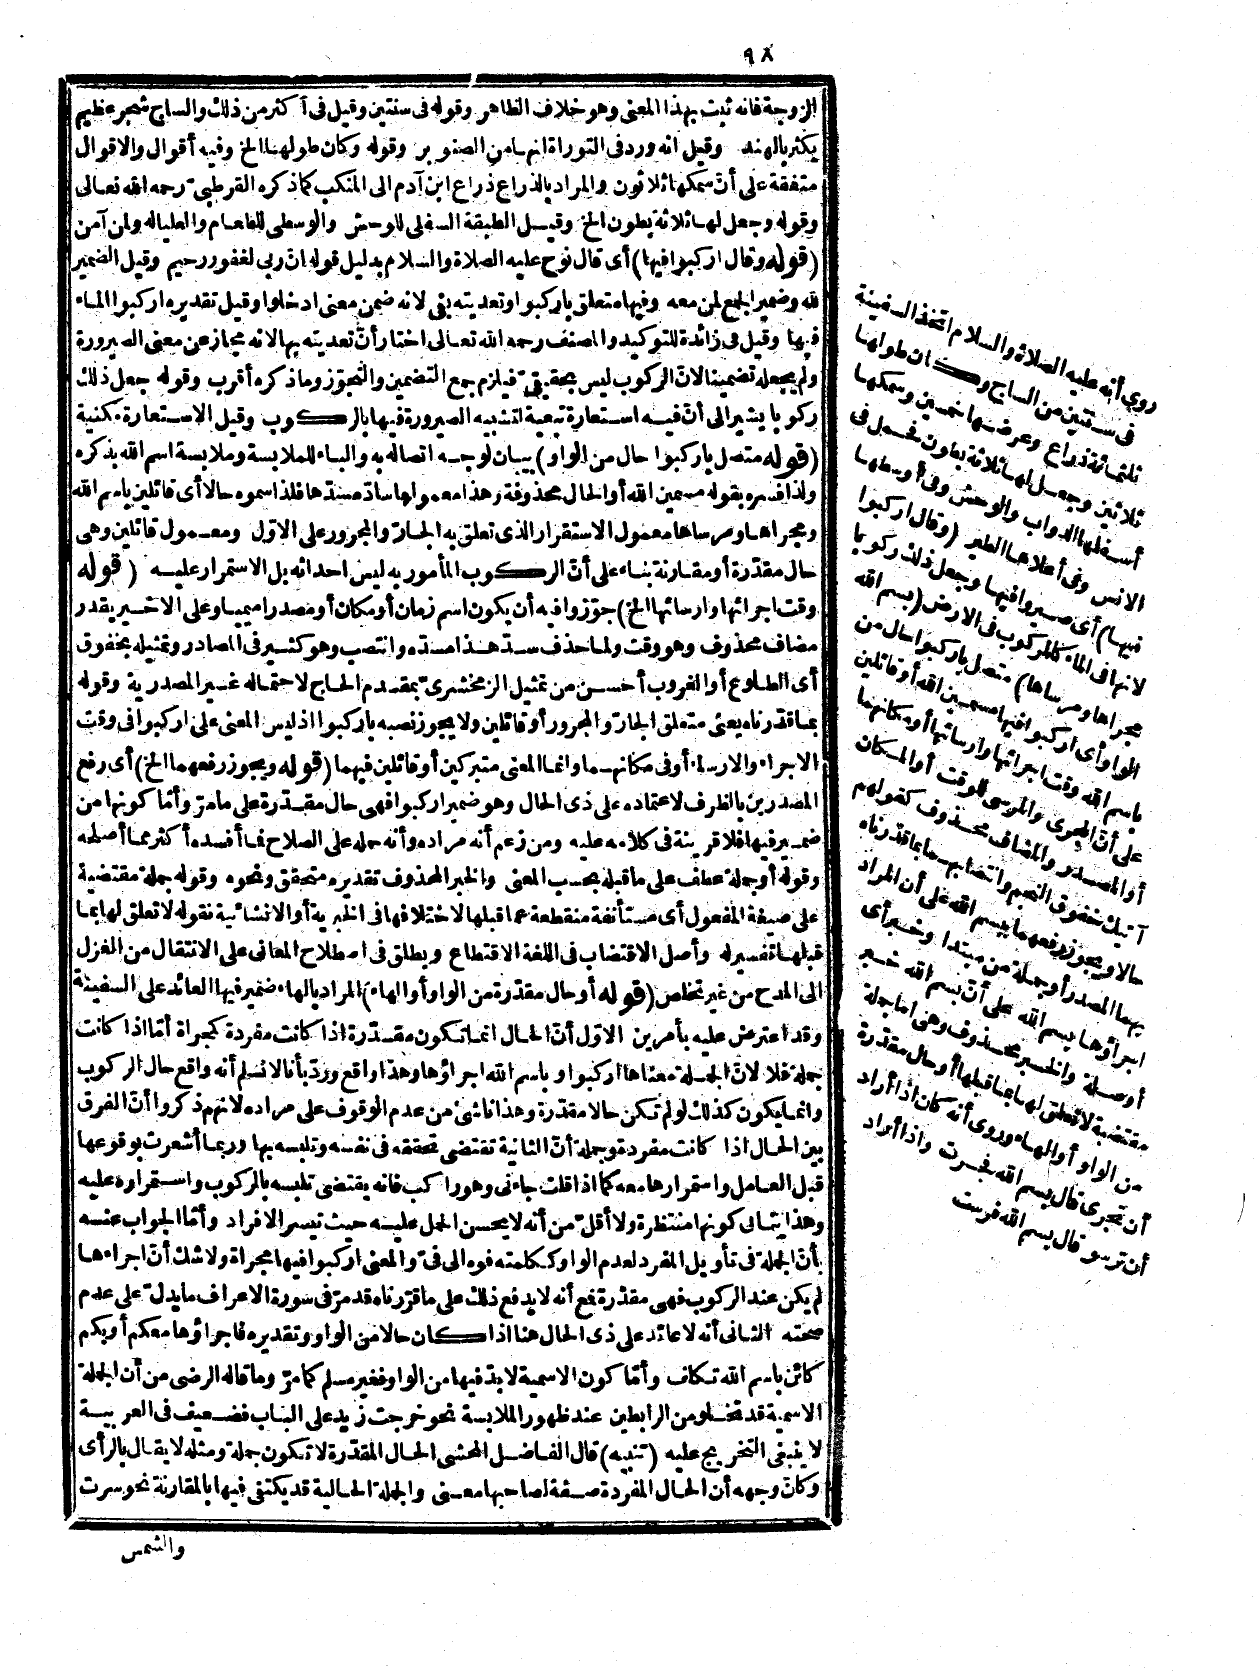 ٩٨
الزوجة فانه ثبت بهذا المعنى وهو خلاف الظاهر وقوله فى سنتين وقيل فى أكثر من ذلك والساج شجر عظيم
يكثر بالهند وقيل انه ورد فى التوراة انها من الصنوبر وقوله وكان طولها الخ وفيه أقوال والاقوال
متفقة على أنّ سمكها ثلاثون والمراد بالذراع ذراع ابن آدم الى المنكب كما ذكره القرطبىّ رحمه الله تعالى
وقوله وجعل لها ثلاثة بطون الخ وقيل الطبقة السفلى للوحش والوسطى للطعام والعليا له ولمن آمن
(قوله وقال اركبوا فيها) أى قال نوح عليه الصلاة والسلام بدليل قوله انّ ربى لغفور رحيم وقيل الضمير
لله وضمير الجمع لمن معه وفيها متعلق باركبوا وتعديته بفى لانه ضمن معنى ادخلوا وقيل تقديره اركبوا الماء
فيها وقيل فى زائدة للتوكيد والمصنف رحمه الله تعالى اختار أنّ تعديته بها لانه مجاز عن معنى الصيرورة
ولم يجعله تضمينا لانّ الركوب ليس بحقيقىّ فيلزم جمع التضمين والتجوّز وما ذكره أقرب وقوله جعل ذلك
ركوبا يشير الى أنّ فيه استعارة تبعية لتشبيه الصيرورة فيها بالركوب وقيل الاستعارة مكنية
(قوله متصل باركبوا حال من الواو) بيان لوجه اتصاله به والباء للملابسة وملابسة اسم الله بذكره
ولذا فسره بقوله مسمين الله أو الحال محذوفة وهذا معمولها سادّ مسدّها فلذا سموه حالا أى قائلين باسم الله
ومجراها ومرساها معمول الاستقرار الذى تعلق به الجارّ والمجرور على الاوّل ومعمول قائلين وهى
حال مقدّرة أو مقارنة بناء على أنّ الركوب المأمور به ليس احداثه بل الاستمرار عليه (قوله
وقت اجرائها وارسائها الخ) جوّزوا فيه أن يكون اسم زمان أو مكان أو مصدرا ميميا وعلى الاخير يقدر
مضاف محذوف وهو وقت ولما حذف سدّ هذا مسدّه وانتصب وهو كثير فى المصادر وتمثيله بخفوق
أى الطلوع أو الغروب أحسن من تمثيل الزمخشرىّ بمقدم الحاج لاحتماله غير المصدرية وقوله
بما قدّرناه يعنى متعلق الجارّ والمجرور أو قائلين ولا يجوز نصبه باركبوا اذ ليس المعنى على اركبوا فى وقت
الاجراء والارساء أو فى مكانهما وانما المعنى متبركين أو قائلين فيهما (قوله ويجوز رفعهما الخ) أى رفع
المصدرين بالظرف لاعتماده على ذى الحال وهو ضمير اركبوا فهى حال مقدّرة على ما مرّ وأمّا كونها من
ضمير فيها فلا قرينة فى كلامه عليه ومن زعم أنه مراده وأنه حمله على الصلاح فما أفسده أكثر مما أصلحه
وقوله أو جملة عطف على ما قبله بحسب المعنى والخبر المحذوف تقديره متحقق ونحوه وقوله جملة مقتضبة
على صيغة المفعول أى مستأنفة منقطعة عما قبلها لاختلافها فى الخبرية أو الانشائية فقوله لا تعلق لها بما
قبلها تفسير له وأصل الاقتضاب فى اللغة الاقتطاع ويطلق فى اصطلاح المعانى على الانتقال من الغزل
الى المدح من غير تخلص (قوله أو حال مقدّرة من الواو أو الهاء) المراد بالهاء ضمير فيها العائد على السفينة
وقد اعترض عليه بأمرين الاوّل أنّ الحال انما تكون مقدّرة اذا كانت مفردة كمجراة أمّا اذا كانت
جملة فلا لانّ الجملة معناها اركبوا وباسم الله اجراؤها وهذا واقع وردّ بأنا لا نسلم أنه واقع حال الركوب
وانما يكون كذلك لو لم تكن حالا مقدّرة وهذا ناشئ من عدم الوقوف على مراده لانهم ذكروا أنّ الفرق
بين الحال اذا كانت مفردة وجملة أنّ الثانية تقتضى تحققه فى نفسه وتلبسه بها وربما أشعرت بوقوعها
قبل العامل واستمرارها معه كما اذا قلت جاءنى وهو راكب فانه يقتضى تلبسه بالركوب واستمراره عليه
وهذا ينافى كونها منتظرة ولا أقلّ من أنه لا يحسن الحمل عليه حيث تيسر الافراد وأمّا الجواب عنه
بأنّ الجملة فى تأويل المفرد لعدم الواو ككلمته فوه الى فىّ والمعنى اركبوا فيها مجراة ولا شك أنّ اجراءها
لم يكن عند الركوب فهى مقدّرة فمع أنه لا يدفع ذلك على ما قرّرناه قد مرّ فى سورة الاعراف ما يدلّ على عدم
صحته الثانى أنه لا عائد على ذى الحال هنا اذا كان حالا من الواو وتقديره فاجراؤها معكم أو بكم
كائن باسم الله تكلف وأمّا كون الاسمية لا بدّ فيها من الواو فغير مسلم كما مرّ وما قاله الرضى من أن الجملة
الاسمية قد تخلو من الرابطين عند ظهور الملابسة نحو خرجت زيد على الباب فضعيف فى العربية
لا ينبغى التخريج عليه (تنبيه) قال الفاضل المحشى الحال المقدّرة لا تكون جملة ومثله لا يقال بالرأى
وكان وجهه أن الحال المفردة صفة لصاحبها معنى والجملة الحالية قد يكتفى فيها بالمقارنة نحو سرت
والشمس
روى أنه عليه الصلاة والسلام اتخذ السفينة
فى سنتين من الساج وكان طولها
ثلثمائة ذراع وعرضها خمسين وسمكها
ثلاثين وجعل لها ثلاثة بطون فحمل فى
أسفلها الدواب والوحش وفى أوسطها
الانس وفى أعلاها الطير (وقال اركبوا
فيها) أى صيروا فيها وجعل ذلك ركوبا
لانها فى الماء كالمركوب فى الارض (بسم الله
مجراها ومرساها) متصل باركبوا حال من
الواو أى اركبوا فيها مسمين الله أو قائلين
باسم الله وقت اجرائها وارسائها أو مكانهما
على أنّ المجرى والمرسى للوقت أو المكان
أو المصدر والمضاف محذوف كقولهم
آتيك خفوق النجم وانتصابهما بما قدّرناه
حالا ويجوز رفعهما ببسم الله على أن المراد
بهما المصدر أو جملة من مبتدا وخبر أى
اجراؤها بسم الله على أنّ بسم الله خبر
أو صلة والخبر محذوف وهى اما جملة
مقتضبة لا تعلق لها بما قبلها أو حال مقدّرة
من الواو أو الهاء وروى أنه كان اذا أراد
أن تجرى قال بسم الله فجرت واذا أراد
أن ترسو قال بسم الله فرست